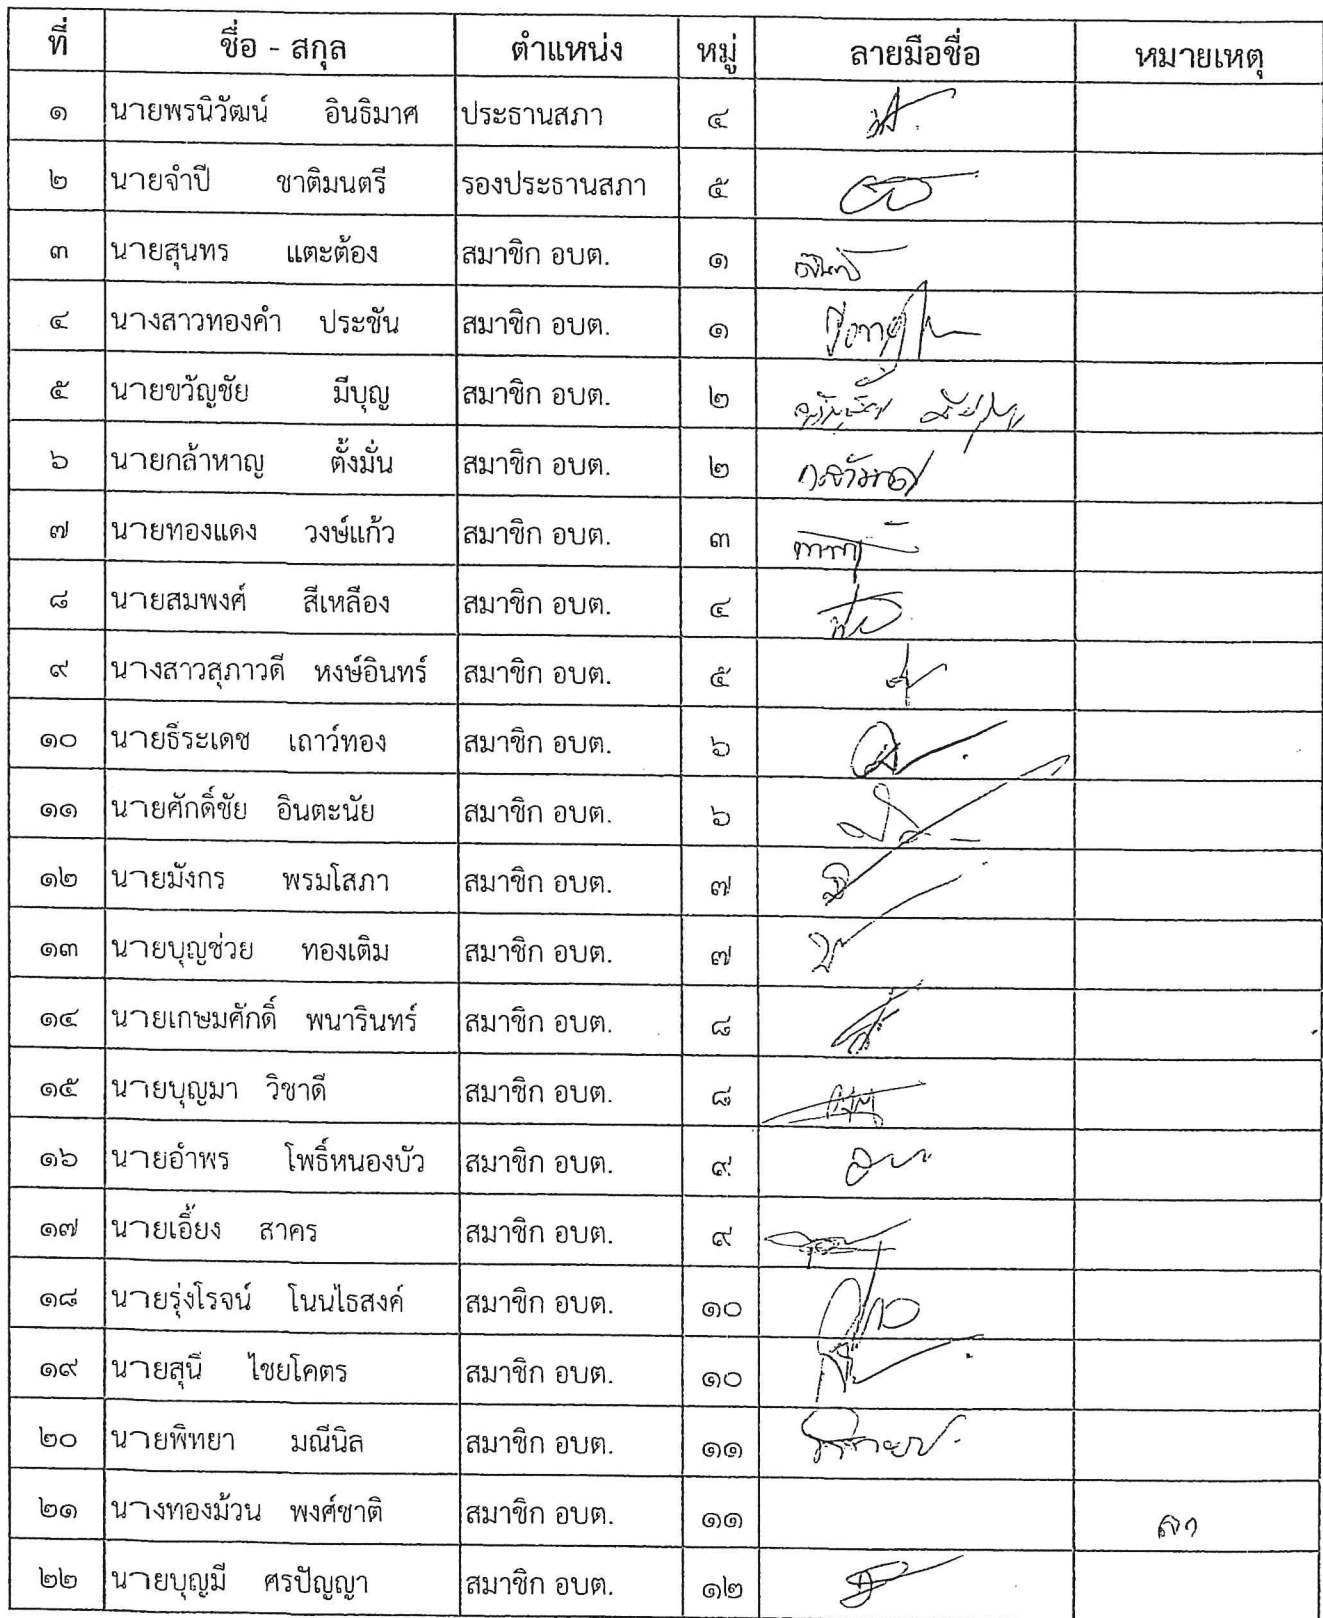 ที่ ชื่อ - สกุล ตำแหน่ง หมู่ ลายมือชื่อ หมายเหตุ
๑ นายพรนิวัฒน์ อินธิมาศ ประธานสภา ๔
๒ นายจำปี ชาติมนตรี รองประธานสภา ๕
๓ นายสุนทร แตะต้อง สมาชิก อบต. ๑
๔ นางสาวทองคำ ประชัน สมาชิก อบต. ๑
๕ นายขวัญชัย มีบุญ สมาชิก อบต. ๒
๖ นายกล้าหาญ ตั้งมั่น สมาชิก อบต. ๒
๗ นายทองแดง วงษ์แก้ว สมาชิก อบต. ๓
๘ นายสมพงศ์ สีเหลือง สมาชิก อบต. ๔
๙ นางสาวสุภาวดี หงษ์อินทร์ สมาชิก อบต. ๕
๑๐ นายธีระเดช เถาว์ทอง สมาชิก อบต. ๖
๑๑ นายศักดิ์ชัย อินตะนัย สมาชิก อบต. ๖
๑๒ นายมังกร พรมโสภา สมาชิก อบต. ๗
๑๓ นายบุญช่วย ทองเติม สมาชิก อบต. ๗
๑๔ นายเกษมศักดิ์ พนารินทร์ สมาชิก อบต. ๘
๑๕ นายบุญมา วิชาดี สมาชิก อบต. ๘
๑๖ นายอำพร โพธิ์หนองบัว สมาชิก อบต. ๙
๑๗ นายเอี้ยง สาคร สมาชิก อบต. ๙
๑๘ นายรุ่งโรจน์ โนนไธสงค์ สมาชิก อบต. ๑๐
๑๙ นายสุนี ไชยโคตร สมาชิก อบต. ๑๐
๒๐ นายพิทยา มณีนิล สมาชิก อบต. ๑๑
๒๑ นางทองม้วน พงศ์ชาติ สมาชิก อบต. ๑๑ ลา
๒๒ นายบุญมี ศรปัญญา สมาชิก อบต. ๑๒